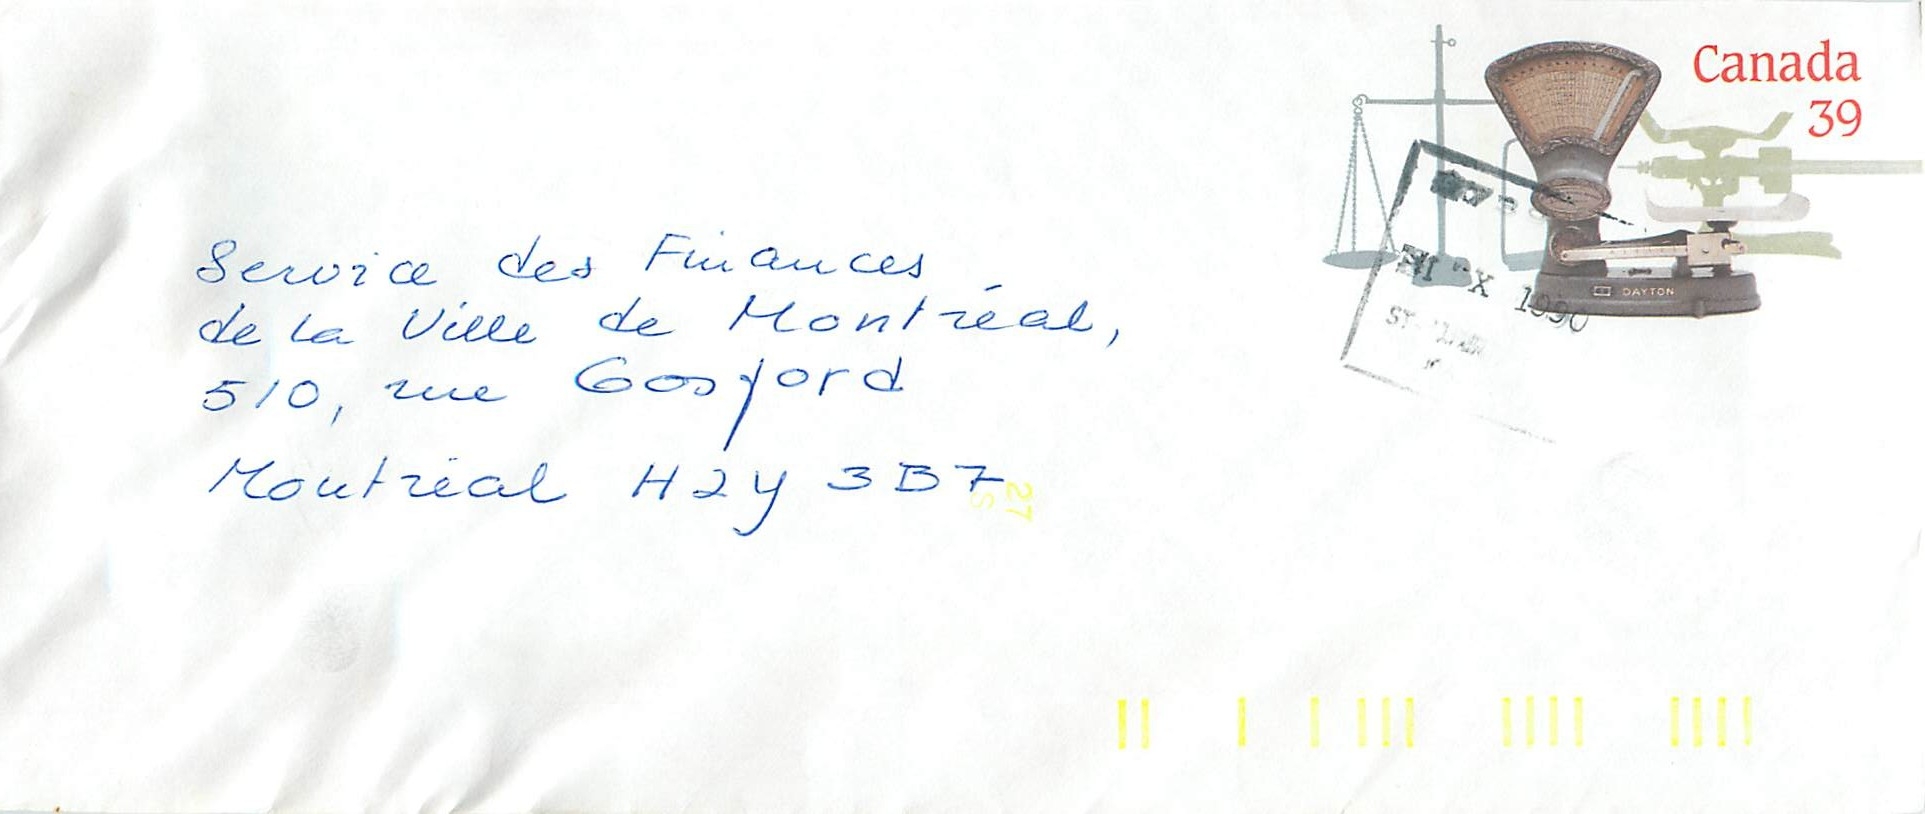 Canada
39
DAYTON
X 1990
Service des Finances
de la Ville de Montréal,
510, rue Gosford
Montréal H2Y 3B7
27
S